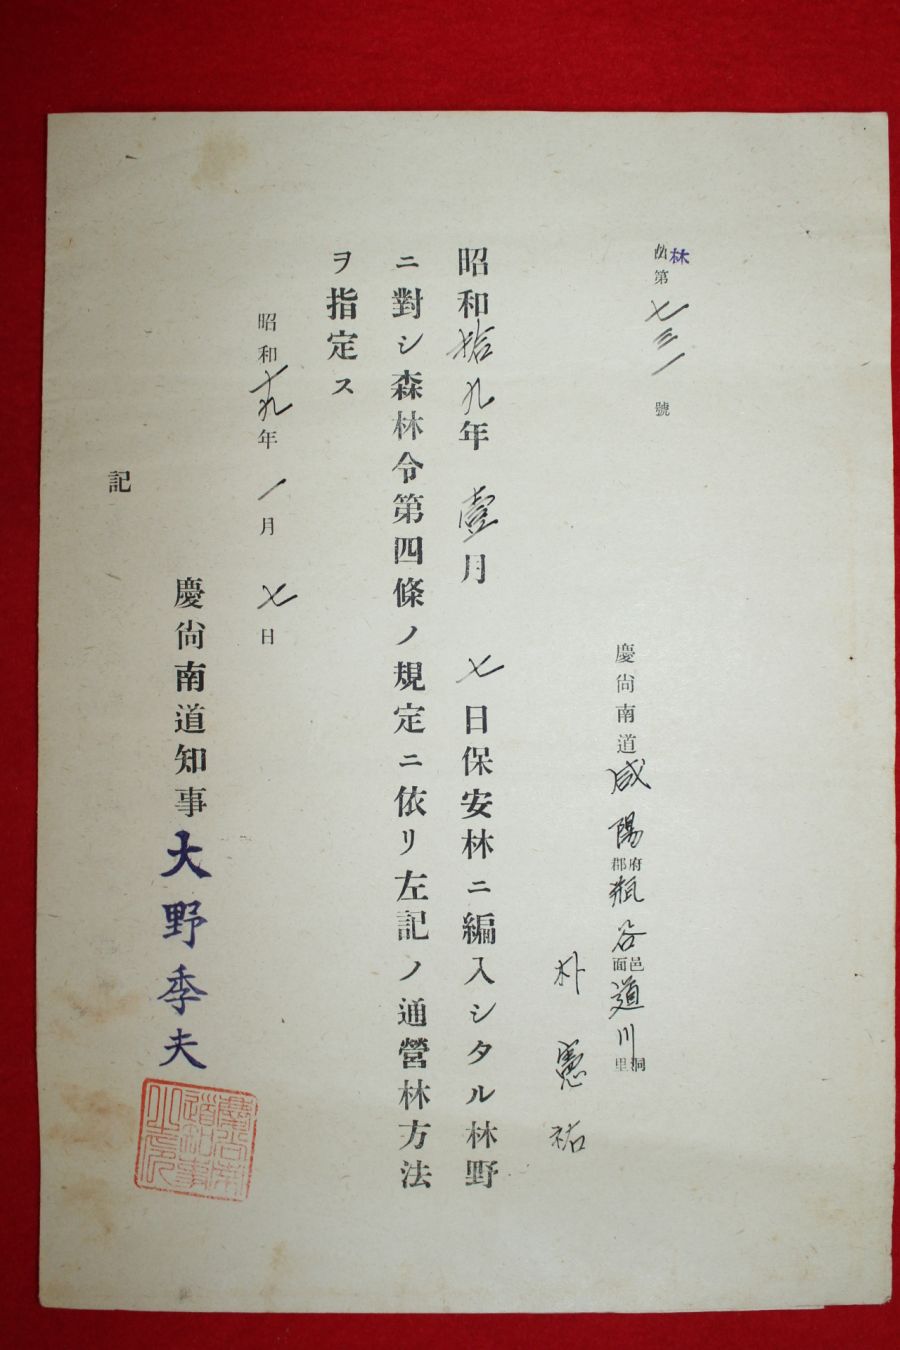 林
第七三一號
慶尙南道咸陽郡府瓶谷面邑道川里洞
朴憲祐
昭和拾九年壹月七日保安林ニ編入シタル林野
ニ對シ森林令第四條ノ規定ニ依リ左記ノ通營林方法
ヲ指定ス
昭和十九年一月七日
慶尙南道知事大野季夫
慶尙南道知事之印
記